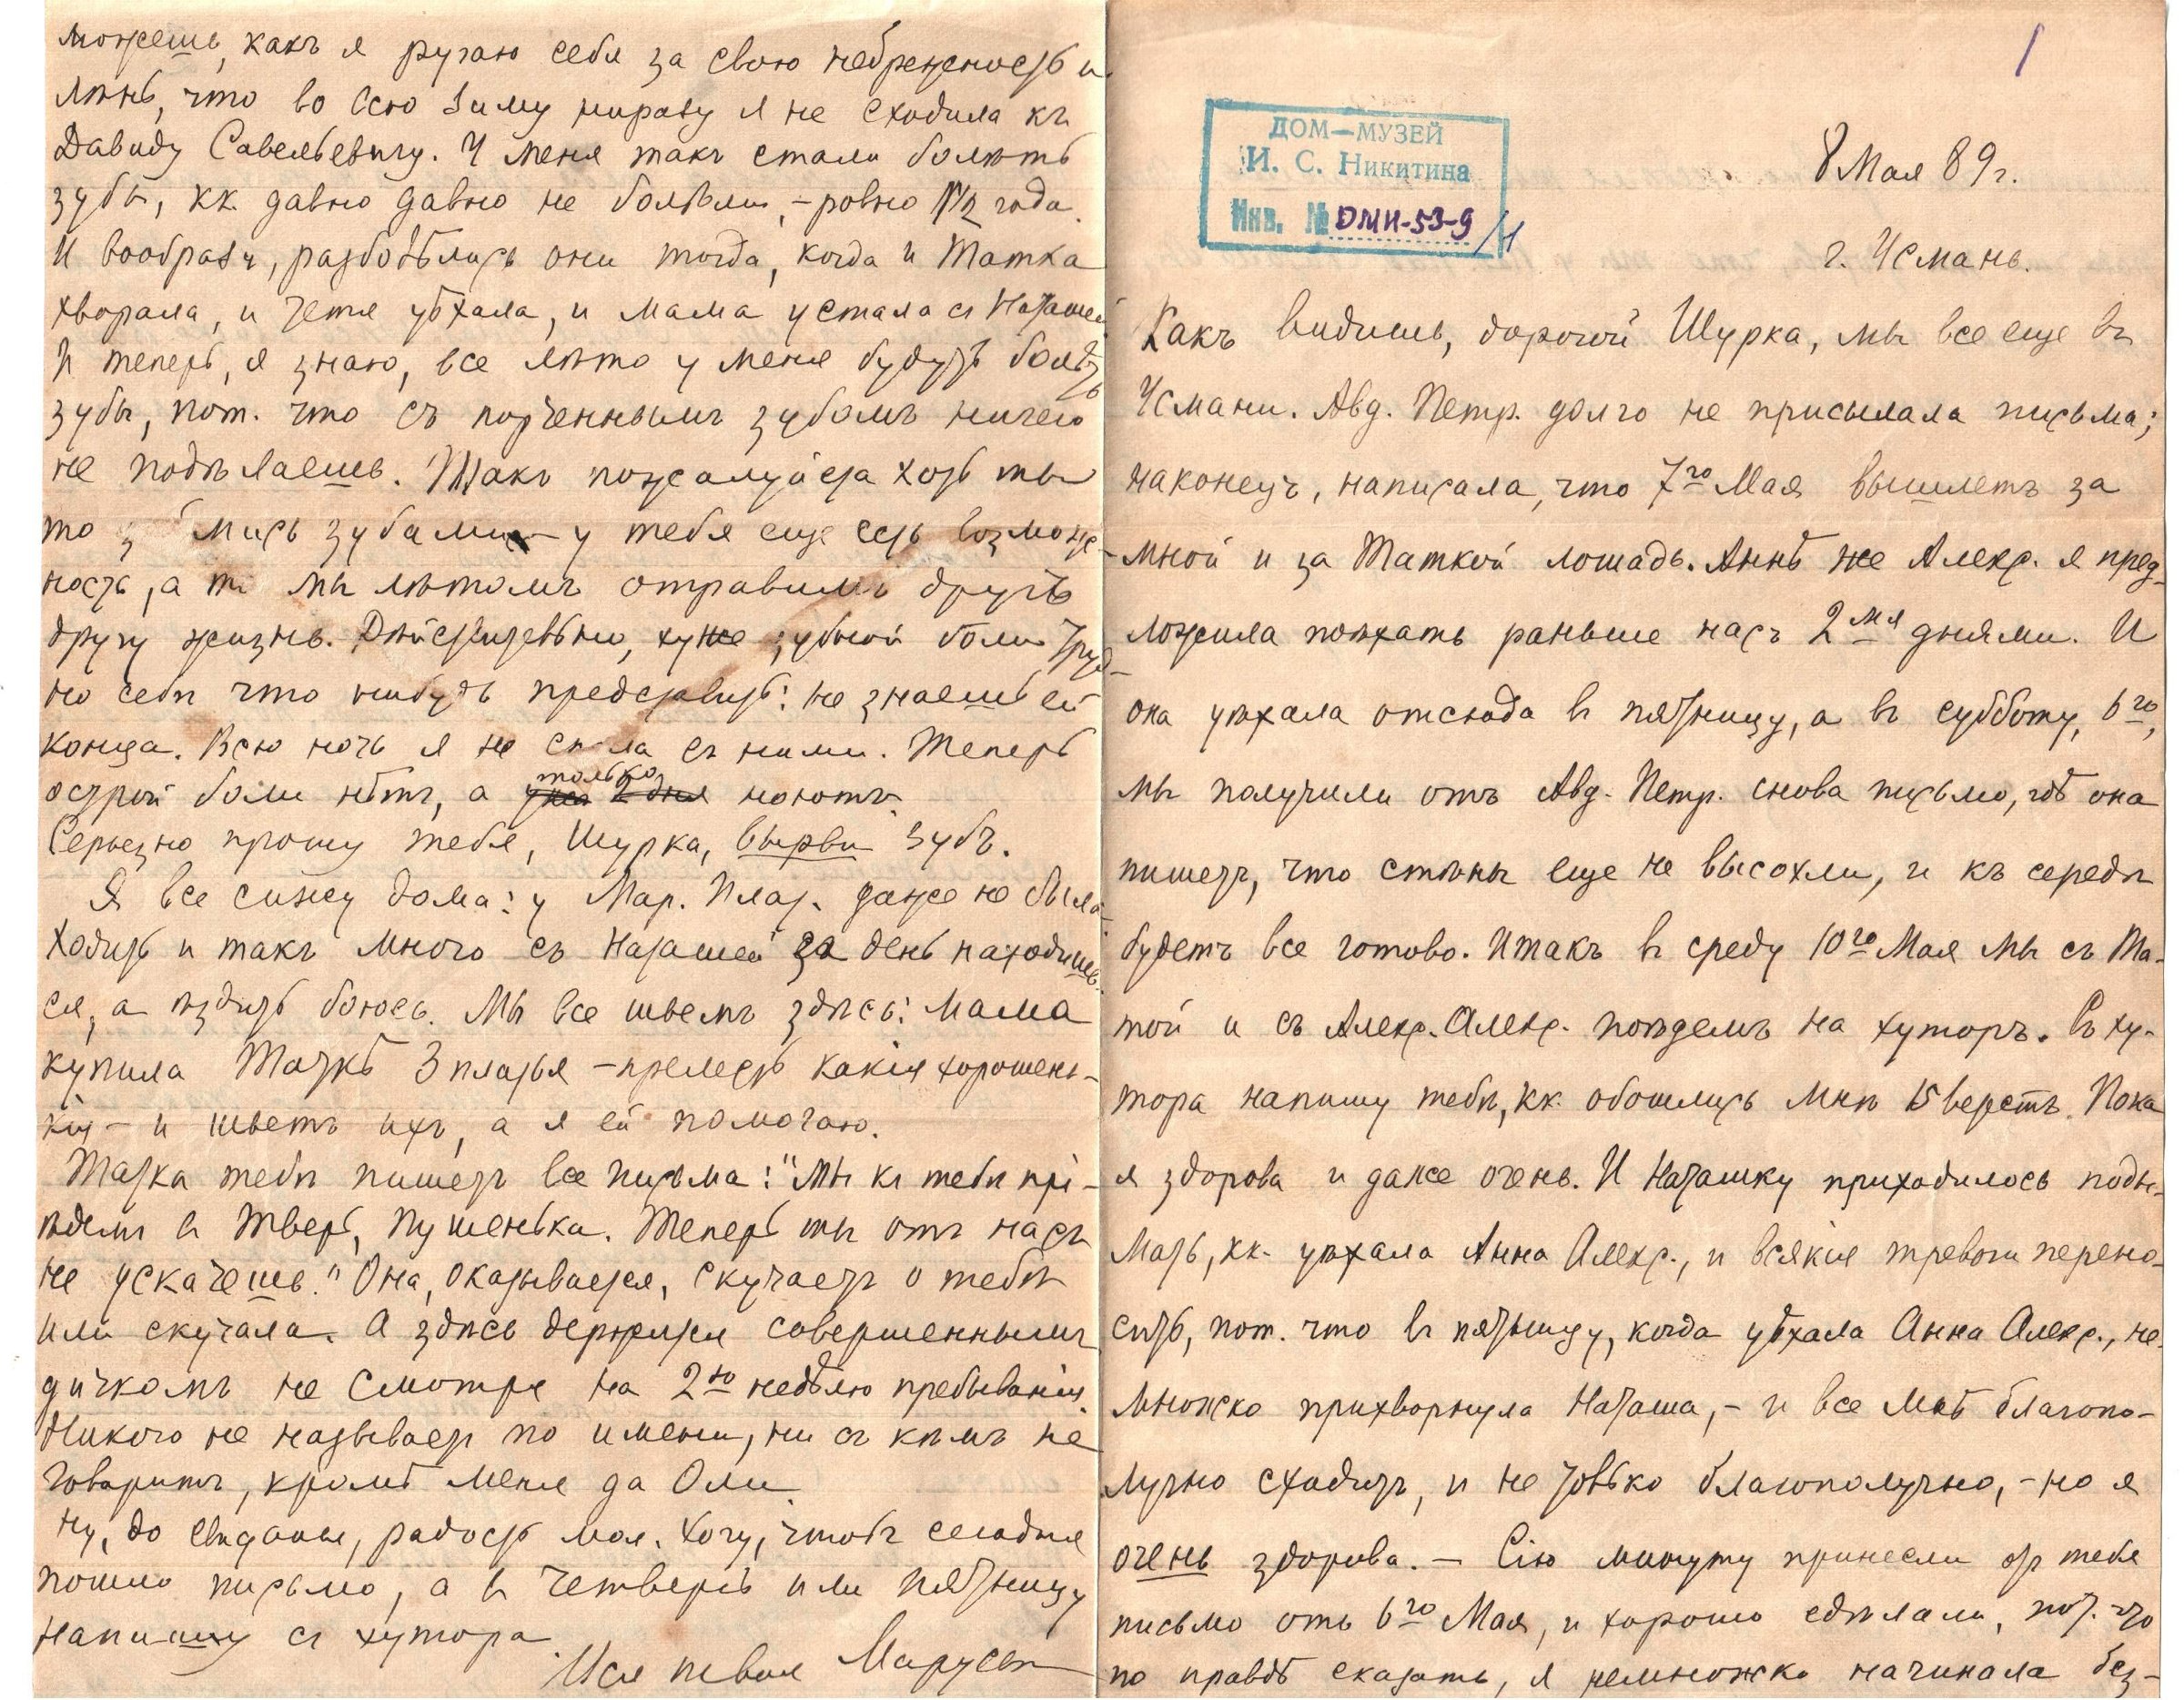 можешь, какъ я ругаю себя за свою небрежность и
лѣнь, что во всю зиму ниразу я не сходила къ
Давиду Савельевичу. У меня такъ стали болѣть
зубы, кк. давно давно не болѣли, – ровно 1 1/2 года.
И вообрази, разболѣлись они тогда, когда и Татка
хворала, и тетя уѣхала, и мама устала съ Наташей
И теперь, я знаю, все лѣто у меня будутъ болѣть
зубы, пот. что съ порченнымъ зубомъ ничего
не подѣлаешь. Такъ пожалуйста хоть ты
то мись зубами у тебя еще есть возмож-
ность, а мы лѣтомъ отравимъ другъ
другу жизнь. Дѣйствительно, хуже зубной боли труд-
но себѣ что нибудь представить: не знаешь ей
конца. Всю ночь я не спала съ ними. Теперь
острой боли нѣтъ, а только ноютъ
Серьезно прошу тебя, Шурка, вырви зубъ.
Я все сижу дома: у Мар. Плат. даже не была
ходить и такъ много съ Наташей за день находишь-
ся, а ѣздить боюсь. Мы все шьемъ здѣсь: мама
купила Таткѣ 3 платья – прелесть какія хорошень-
кія – и шьетъ ихъ, а я ей помогаю.
Татка тебѣ пишетъ все письма: "Мы къ тебѣ прі-
ѣдемъ въ Тверь, Пушенька. Теперь ты отъ насъ
не ускачешь." Она, оказывается, скучаетъ о тебѣ
или скучала. А здѣсь держится совершеннымъ
дичкомъ не смотря на 2ую недѣлю пребыванія.
Никого не называетъ по имени, ни съ кѣмъ не
говоритъ, кромѣ меня да Оли.
Ну, до свиданья, радость моя. Хочу, чтобъ сегодня
пошло письмо, а въ четвергъ или пятницу
напишу съ хутора
Маруся
1
ДОМ–МУЗЕЙ
И. С. Никитина
Инв. № ДМН-53-9/1
8 Мая 89 г.
г. Усмань.
Какъ видишь, дорогой Шурка, мы все еще въ
Усмани. Авд. Петр. долго не присылала письма;
наконецъ, написала, что 7го Мая вышлетъ за
мной и за Таткой лошадь. Аннѣ же Алекс. я пред-
ложила поѣхать раньше насъ 2мя днями. И
она уѣхала отсюда въ пятницу, а въ субботу, 6го,
мы получили отъ Авд. Петр. снова письмо, гдѣ она
пишетъ, что стѣны еще не высохли, и къ середѣ
будетъ все готово. Итакъ въ среду 10го Мая мы съ Та-
той и съ Алекс. Алекс. поѣдемъ на хуторъ. Съ ху-
тора напишу тебѣ, кк. обошлись мнѣ 15 верстъ. Пока
я здорова и даже очень. И Наташку приходилось поды-
мать, кк. уѣхала Анна Алекс., и всякія тревоги перено-
сить, пот. что въ пятницу, когда уѣхала Анна Алекс., не-
множко прихворнула Наташа, – и все мнѣ благопо-
лучно сходитъ, и не только благополучно, – но я
очень здорова. – Сію минуту принесли отъ тебя
письмо отъ 6го Мая, и хорошо сдѣлали, пот. что
по правдѣ сказать, я немножко начинала без-